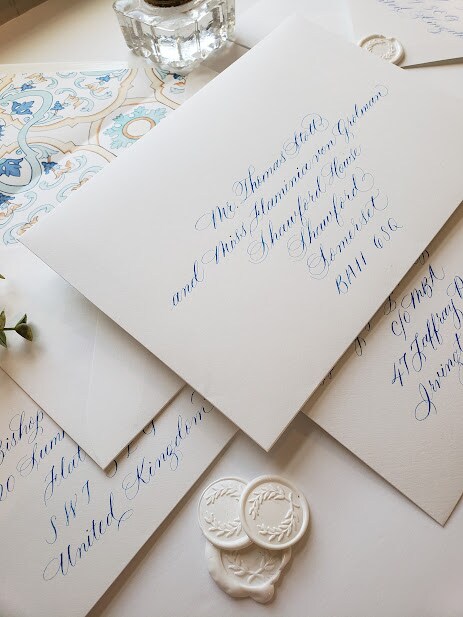 Mr. Thomas Stott
and Miss Flaminia von
Shawford House
Shawford
Somerset
BA11 6SQ
c/o MBA
47 Jaffray
Irving
Bishop
20
Flat
SW7
United Kingdom